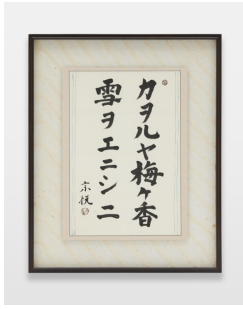 カヲルヤ梅ヶ香
雪ヲエニシニ
宗悦